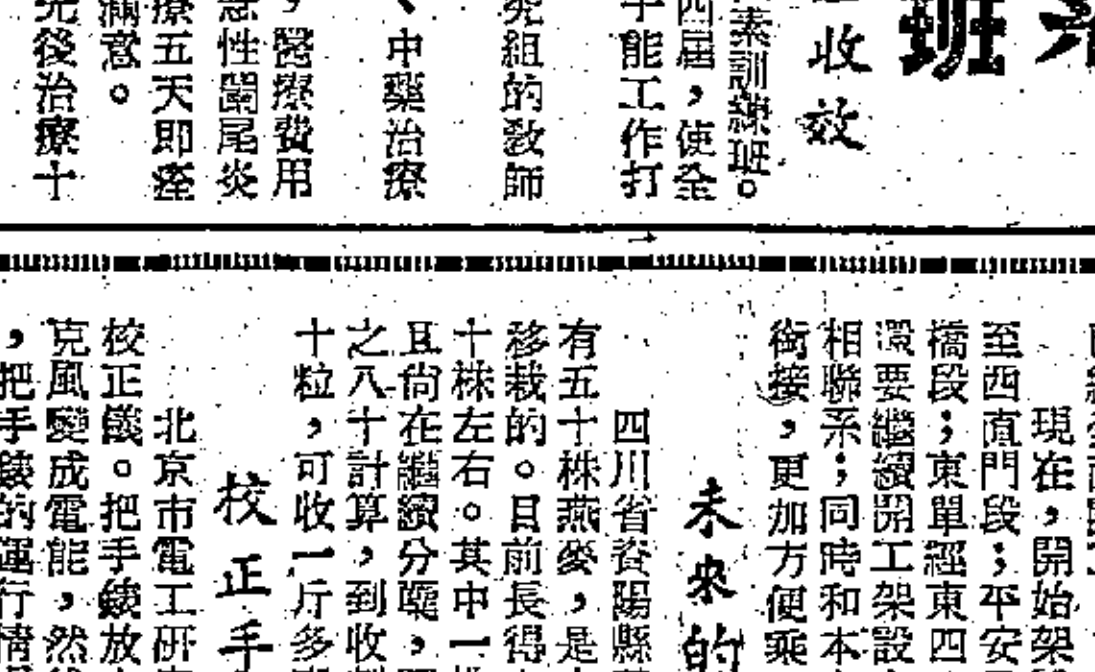 班
收效
素訓練班。
四屆，使全
子能工作打
究組的教師
、中藥治療
，醫療費用
急性闌尾炎
療五天即痊
滿意。
後治療十
現在，開始架
至西直門段；平安
橋段；東單經東四
還要繼續開工架設
相聯系；同時和本
銜接，更加方便乘
未來的
四川省資陽縣
有五十株燕麥，是
移栽的。目前長得
十株左右。其中一
且尙在繼續分蘖，
之八十計算，到收
十粒，可收一斤多
校正手
北京市電工研
校正儀。把手錶放
克風變成電能，然
，把手錶的運行情